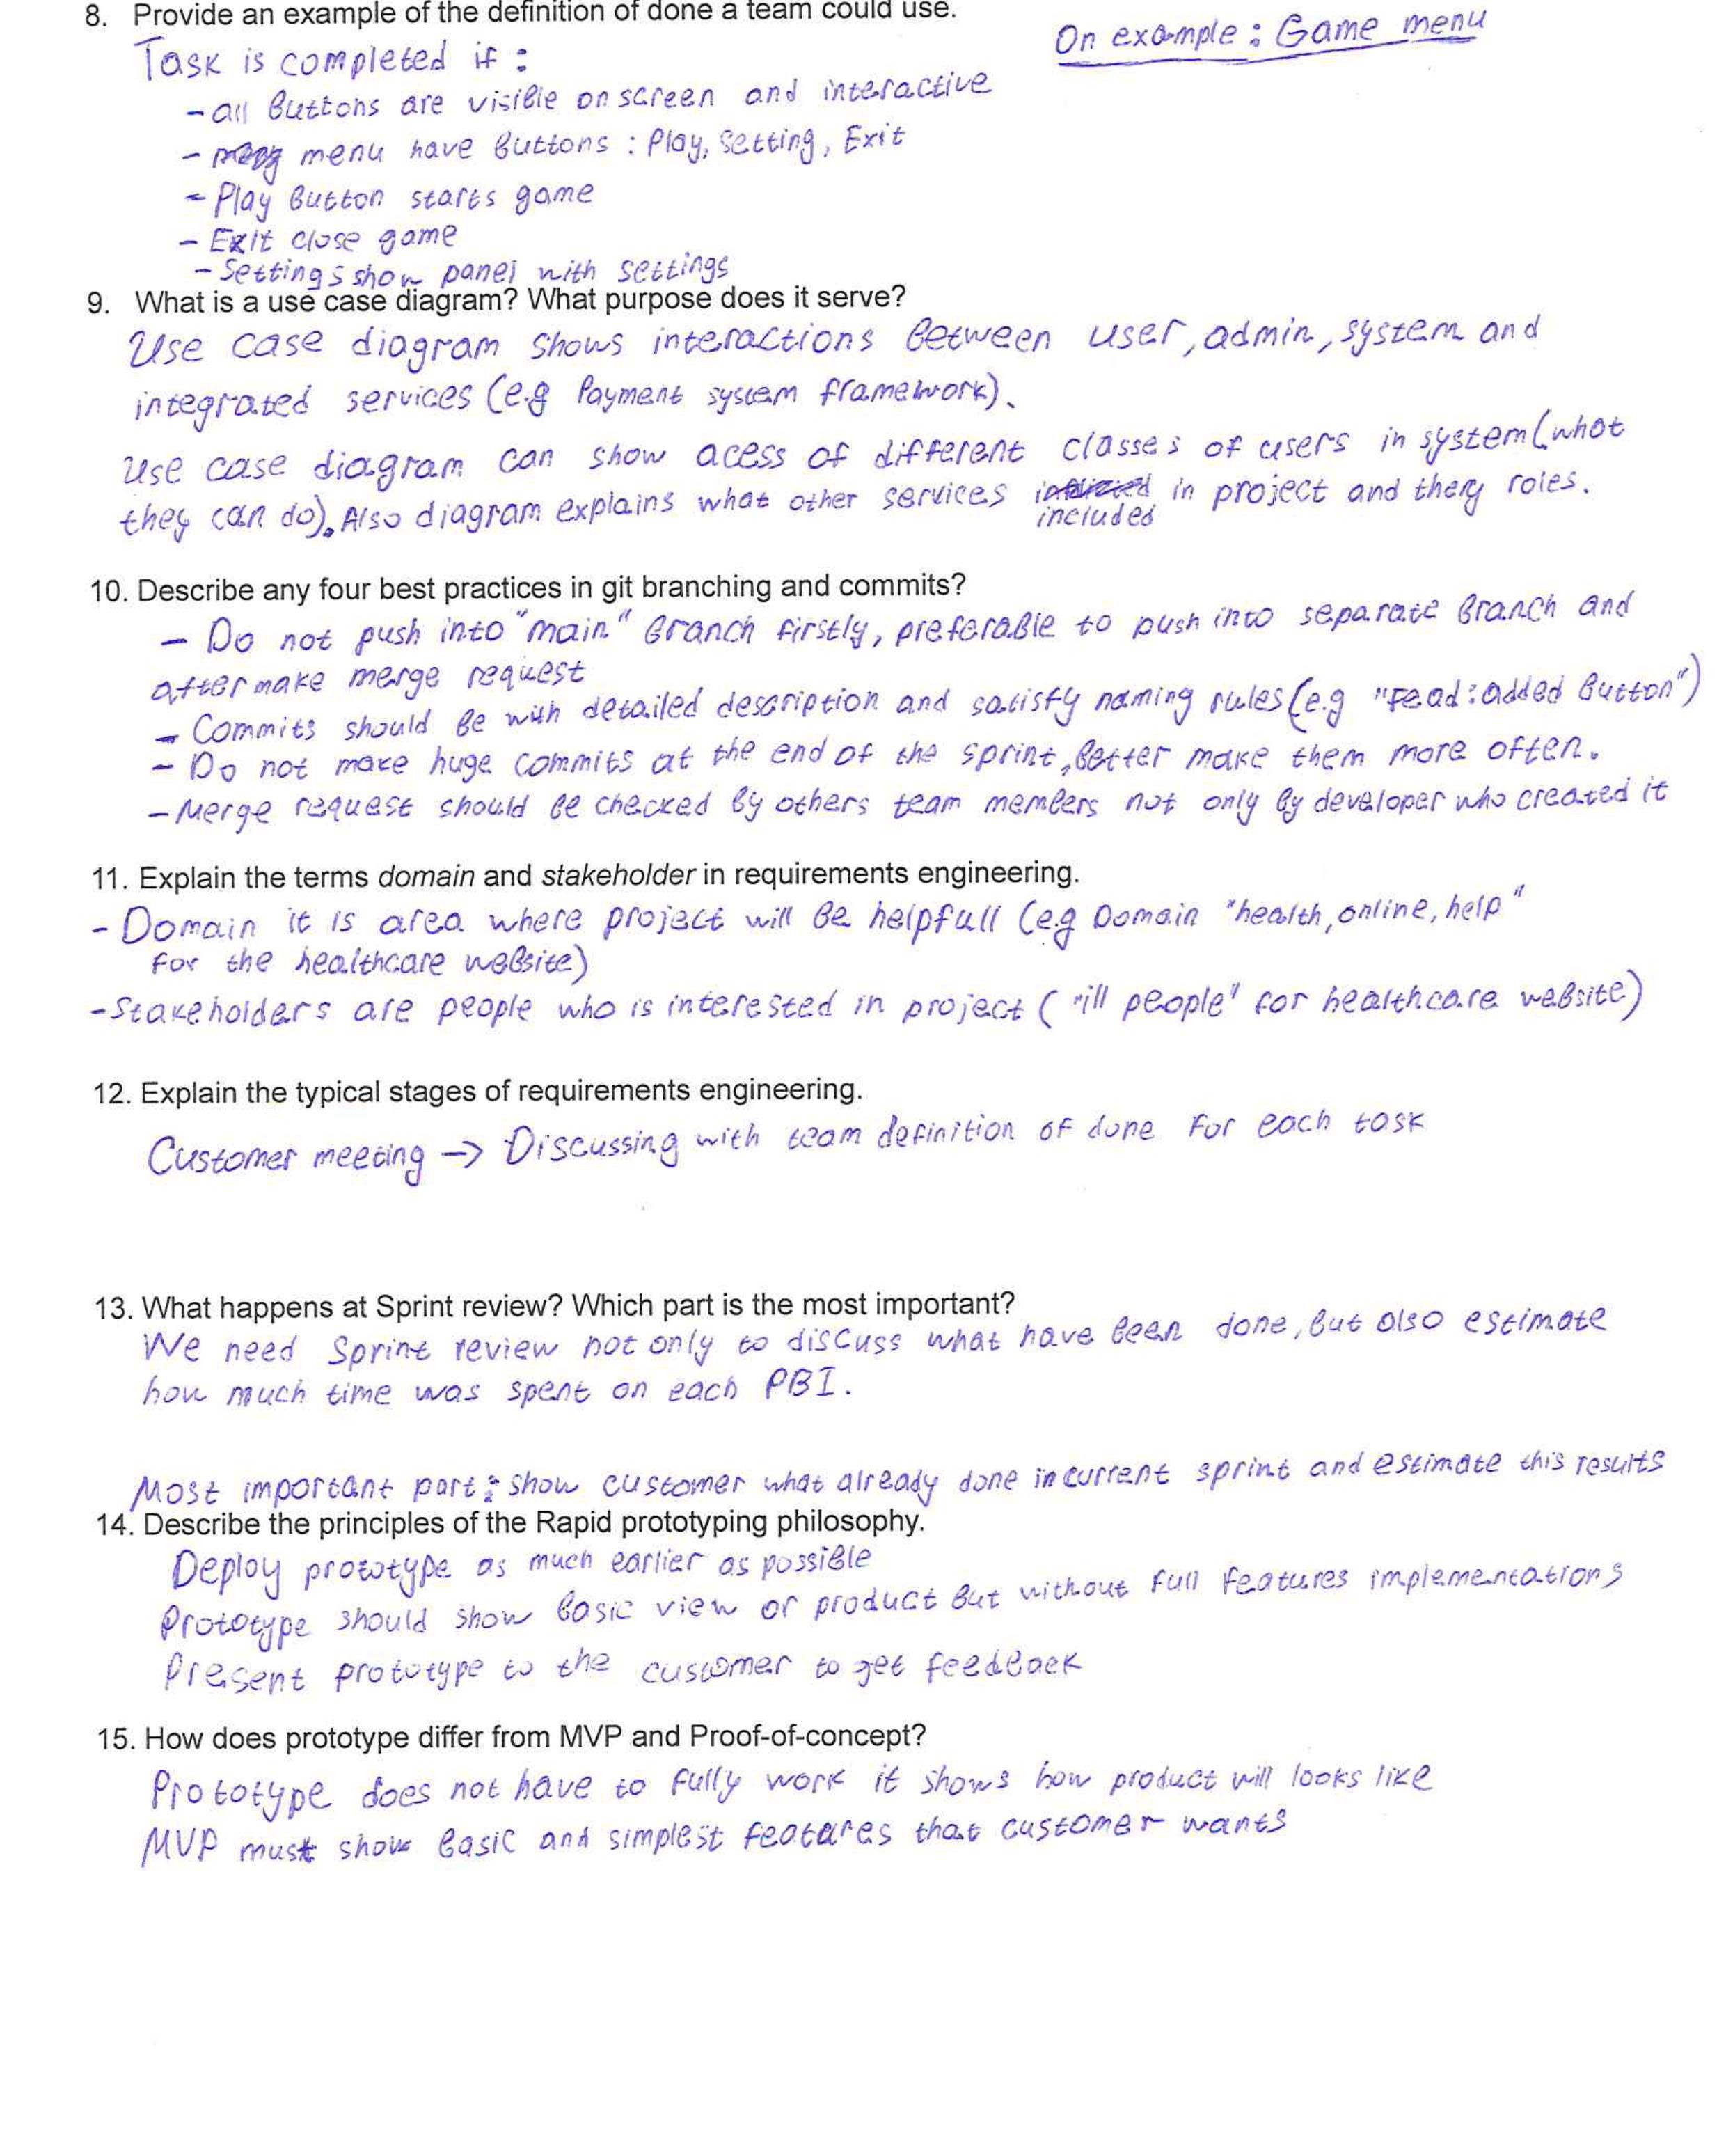 8. Provide an example of the definition of done a team could use.
On example : Game menu
Task is completed if :
- all buttons are visible on screen and interactive
- menu have buttons : Play, Setting, Exit
- Play button starts game
- Exit close game
- Settings show panel with settings
9. What is a use case diagram? What purpose does it serve?
Use case diagram shows interactions between user, admin, system and
integrated services (e.g Payment system framework).
Use case diagram can show acess of different classes of users in system (what
they can do). Also diagram explains what other services included in project and they roles.
10. Describe any four best practices in git branching and commits?
- Do not push into "main" branch firstly, preferable to push into separate branch and
after make merge request
- Commits should be with detailed description and satisfy naming rules (e.g "Fead: added button")
- Do not make huge commits at the end of the sprint, better make them more often.
- Merge request should be checked by others team members not only by developer who created it
11. Explain the terms domain and stakeholder in requirements engineering.
- Domain it is area where project will be helpfull (e.g Domain "health, online, help"
for the healthcare website)
- Stakeholders are people who is interested in project ( "ill people" for healthcare website)
12. Explain the typical stages of requirements engineering.
Customer meeting -> Discussing with team definition of done for each task
13. What happens at Sprint review? Which part is the most important?
We need Sprint review not only to discuss what have been done, but also estimate
how much time was spent on each PBI.
Most important part : show customer what already done in current sprint and estimate this results
14. Describe the principles of the Rapid prototyping philosophy.
Deploy prototype as much earlier as possible
Prototype should show basic view of product but without full features implementations
Present prototype to the customer to get feedback
15. How does prototype differ from MVP and Proof-of-concept?
Prototype does not have to fully work it shows how product will looks like
MVP must show basic and simplest features that customer wants